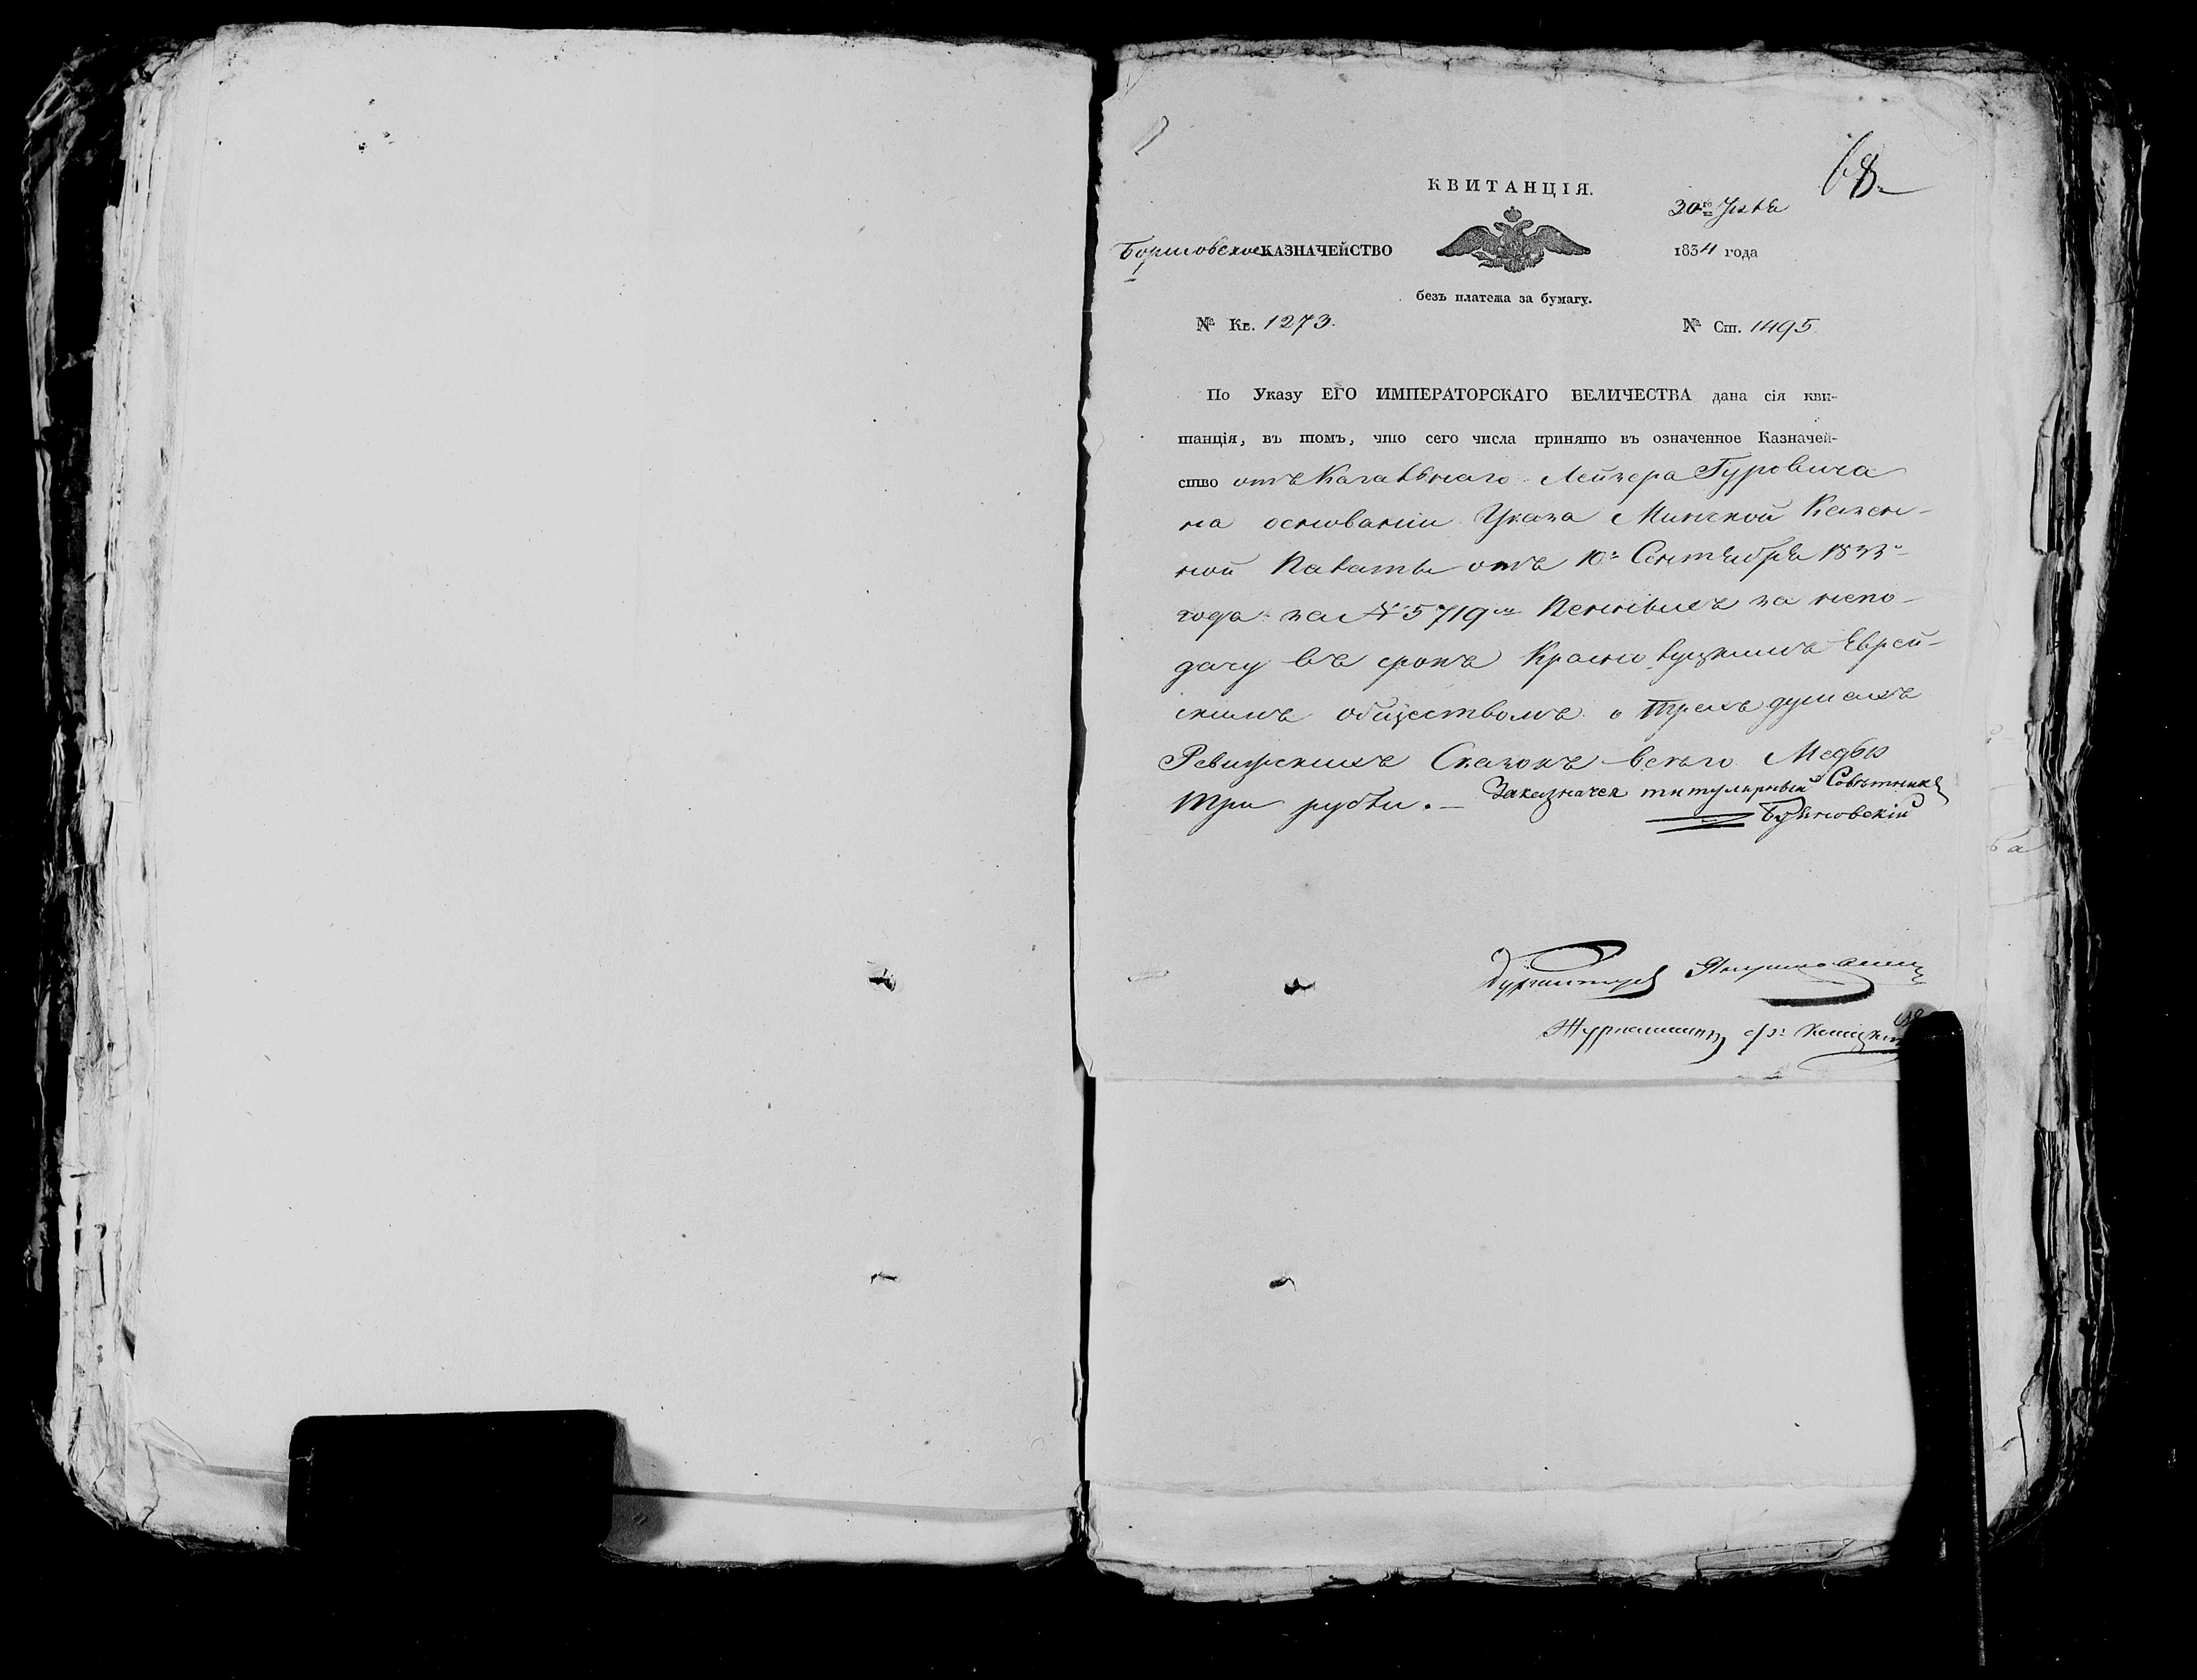 68.
КВИТАНЦІЯ.
30го Іюля
Борисовское КАЗНАЧЕЙСТВО
1834 года
безъ платежа за бумагу.
№ Кв. 1273.
№ Ст. 1495
По Указу ЕГО ИМПЕРАТОРСКАГО ВЕЛИЧЕСТВА дана сія кви-
танція, въ томъ, что сего числа принято въ означенное Казначей-
ство отъ Кагальнаго Лейзера Гуровича
на основаніи Указа Минской Казен-
ной Палаты отъ 10го Сентября 1833го
года за № 5719мъ за непо-
дачу въ срокъ Еврей-
скимъ обществомъ о трехъ душахъ
Ревизскихъ Сказокъ всего Медью
три рубли. —
За казначея титулярный Совѣтникъ
Бухгалтеръ
Журналистъ